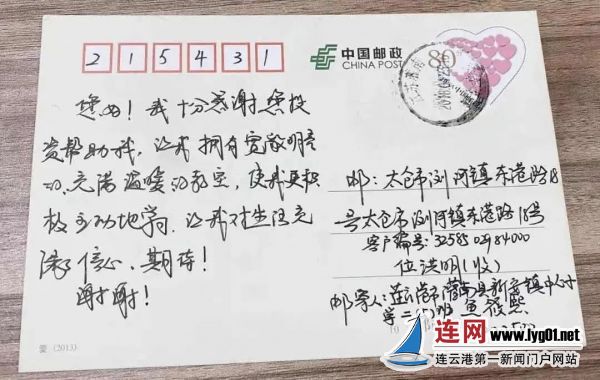 215431
中国邮政
CHINA POST
80
您好！我十分感谢您投
资帮助我，让我拥有宽敞明亮
的、充满温暖的教室，使我更积
极主动地学习，让我对生活充
满了信心、期待！
谢谢！
邮：太仓市浏河镇东港路18
号太仓市浏河镇东港路18号
客户编号：32585029184000
位洪明（收）
邮寄人：连云港市灌南县新安镇中心小
学二（5）班
爱（2013）
连网 www.lyg01.net
连云港第一新闻门户网站